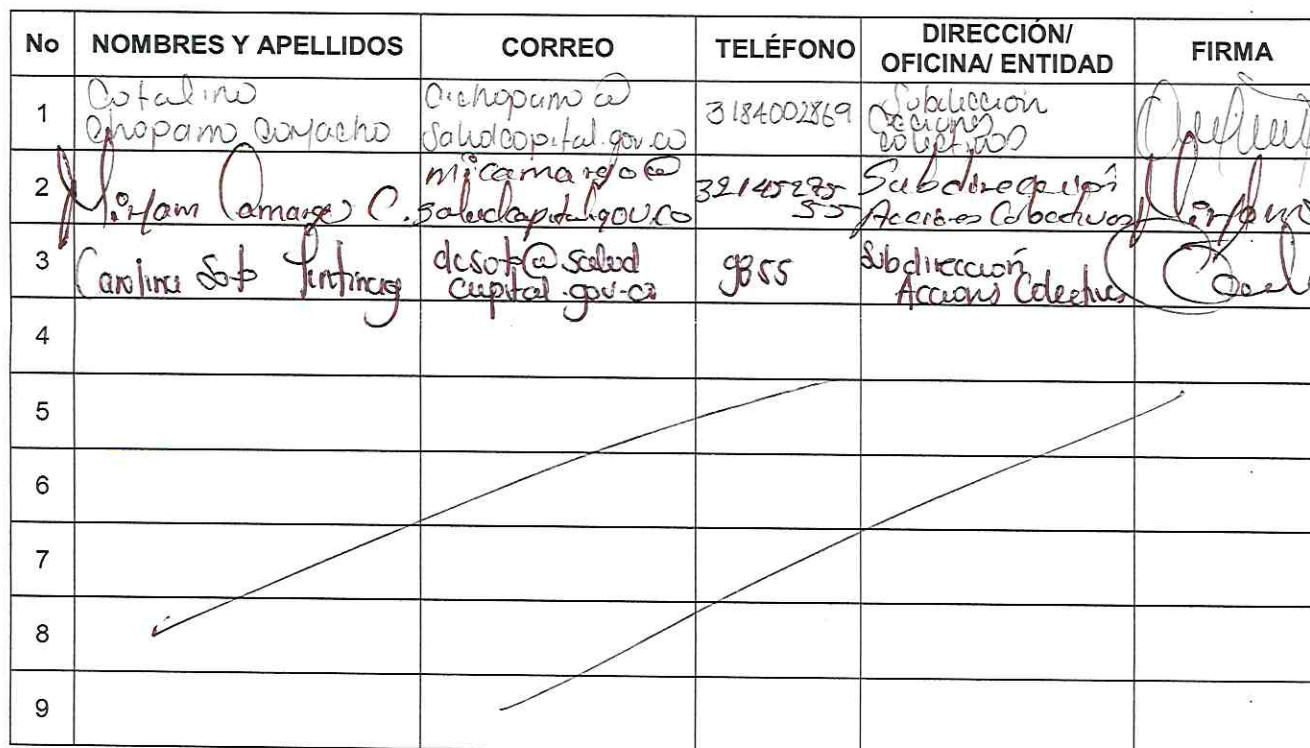 No NOMBRES Y APELLIDOS CORREO TELÉFONO DIRECCIÓN/ OFICINA/ ENTIDAD FIRMA
1 Catalina
Chaparro Camacho
cichaparro@
saludcapital.gov.co
3184002869
Subdirección
Acciones
Colectivas
2 Miryam Camargo C.
micamargo@
saludcapital.gov.co
32145275
55
Subdirección
Acciones Colectivas
3 Carolina Soto
dcsoto@salud
capital.gov.co
9855
Subdirección
Acciones Colectivas
4
5
6
7
8
9